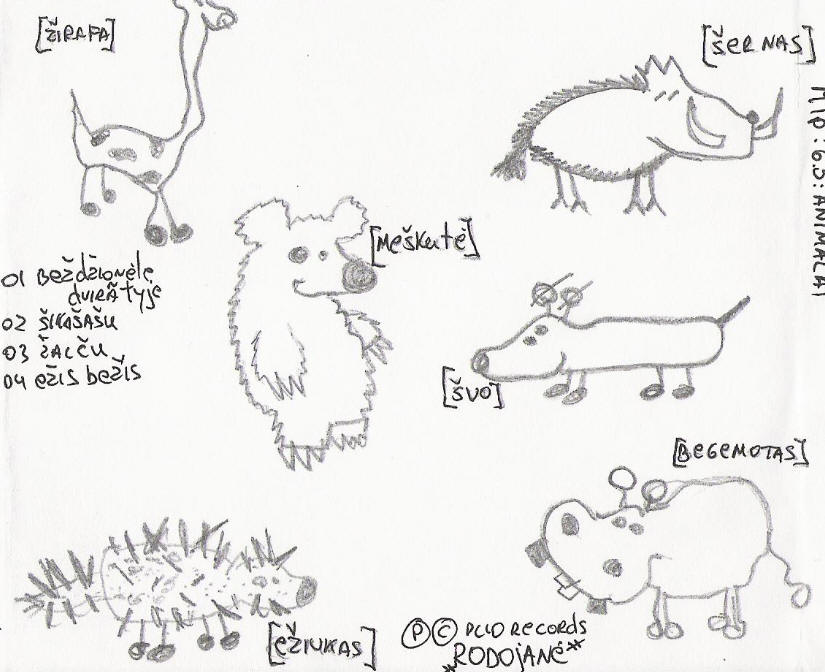 [ŽIRAFA]
[ŠERNAS]
MIP: 6.5: ANIMALAI
[MEŠKUTĖ]
01 BEŽDŽIONĖLĖ
DVIRATYJE
02 ŠIKAŠAŠU
03 ŽALČU
04 EŽIS BEŽIS
[ŠVO]
[BEGEMOTAS]
[EŽIUKAS]
Ⓟ © PCLO RECORDS
*RODOJANĖ*